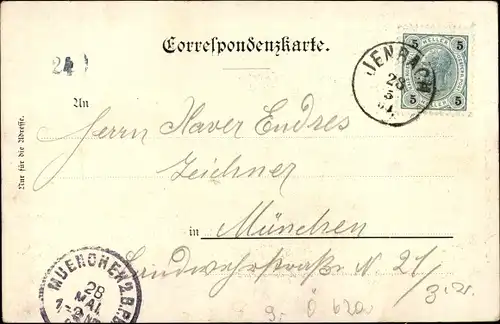 Correspondenzkarte.
24
5 HELLER 5
5 5
JENBACH
28
5
01
An
Nur für die Adresse.
Herrn Xaver Endres
Zeichner
in München
Landwehrstraße N. 21/
3. Et.
MUENCHEN 2 B.P.
28
MAI
1-2 NM
9.